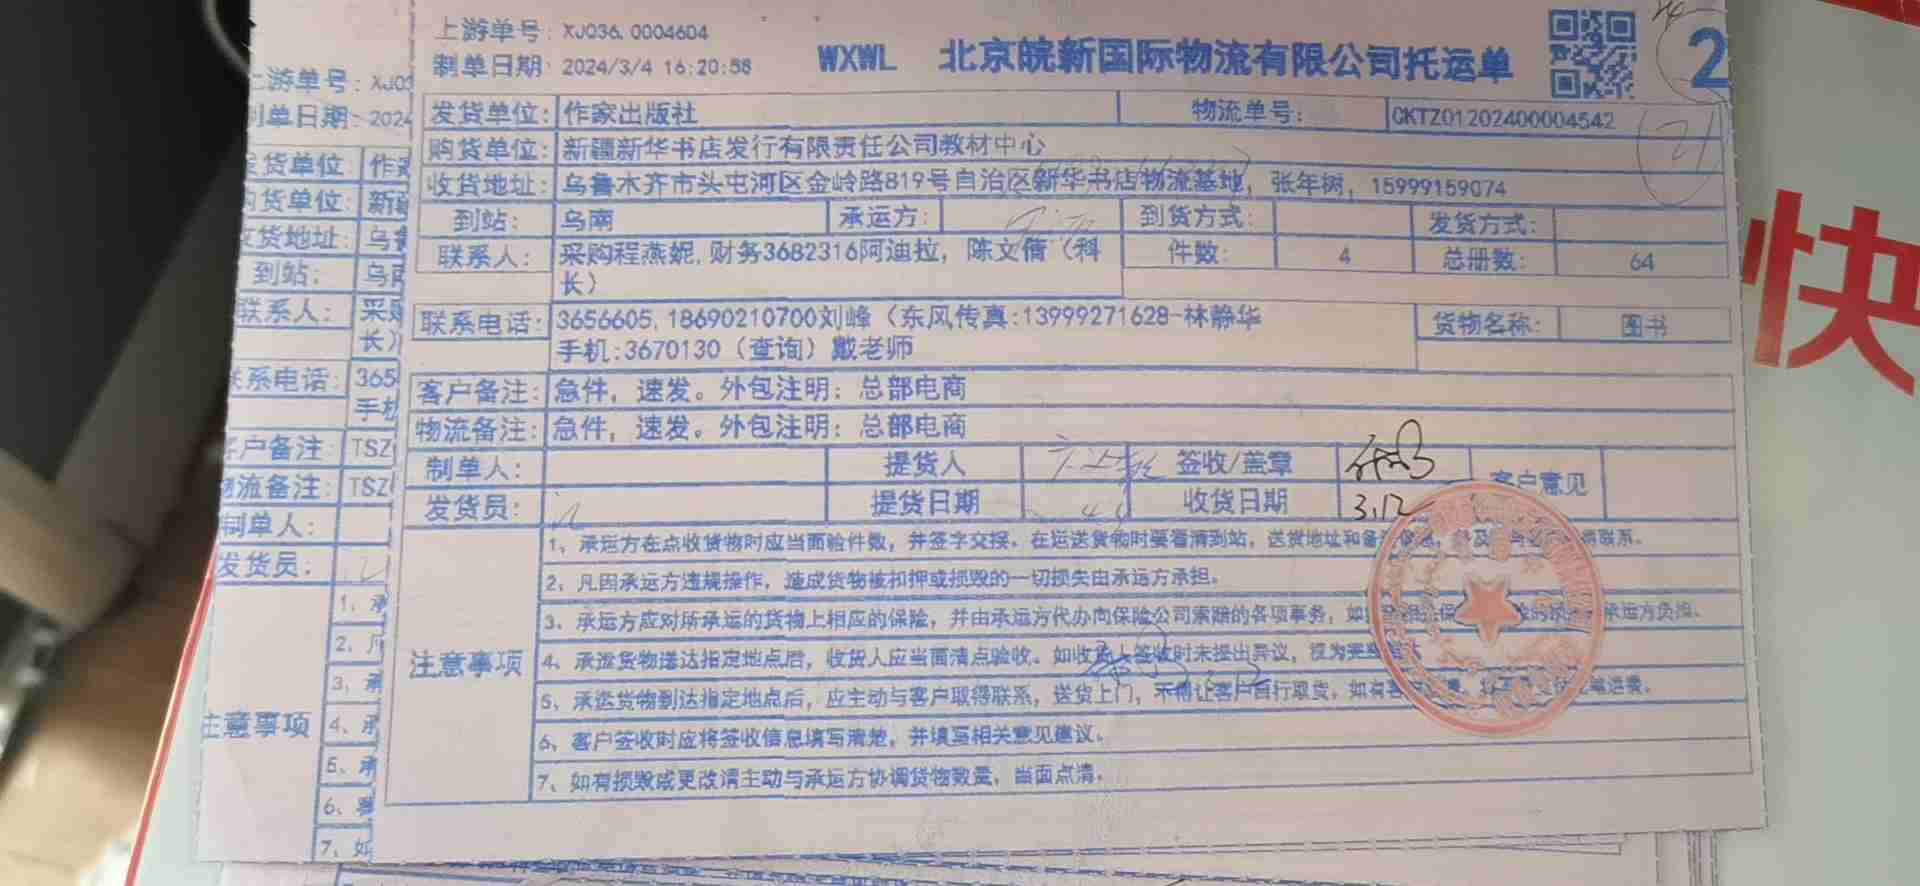 上游单号: XJ036.0004604
制单日期: 2024/3/4 16:20:58
WXWL 北京皖新国际物流有限公司托运单
2
发货单位: 作家出版社 物流单号: CKTZ01202400004542
21
购货单位: 新疆新华书店发行有限责任公司教材中心
收货地址: 乌鲁木齐市头屯河区金岭路819号自治区新华书店物流基地, 张年树, 15999159074
到站: 乌南 承运方: 到货方式: 发货方式:
联系人: 采购程燕妮, 财务3682316阿迪拉, 陈文倩（科长） 件数: 4 总册数: 64
联系电话: 3656605, 18690210700刘峰（东风传真:13999271628-林静华 货物名称: 图书
手机:3670130（查询）戴老师
客户备注: 急件, 速发。外包注明: 总部电商
物流备注: 急件, 速发。外包注明: 总部电商
制单人: 提货人 签收/盖章 客户意见
发货员: 提货日期 收货日期 3.12
注意事项
1、承运方在点收货物时应当面验件数, 并签字交接. 在运送货物时要看清到站, 送货地址和备 联系.
2、凡因承运方违规操作, 造成货物被扣押或损毁的一切损失由承运方承担.
3、承运方应对所承运的货物上相应的保险, 并由承运方代办向保险公司索赔的各项事务, 如 承运方负担.
4、承运货物送达指定地点后, 收货人应当面清点验收. 如收货人签收时未提出异议, 视为完
5、承运货物到达指定地点后, 应主动与客户取得联系, 送货上门, 不得让客户自行取货. 如有
6、客户签收时应将签收信息填写清楚, 并填写相关意见建议.
7、如有损毁或更改请主动与承运方协调货物数量, 当面点清.
上游单号: XJ03
制单日期: 2024
发货单位
购货单位: 新
收货地址: 乌
到站:
联系人: 采
长）
联系电话: 365
手机
客户备注: TSZ
物流备注: TSZ
制单人:
发货员:
注意事项
1、承
2、
3、承
4、承
5、承
6、
7、如
快